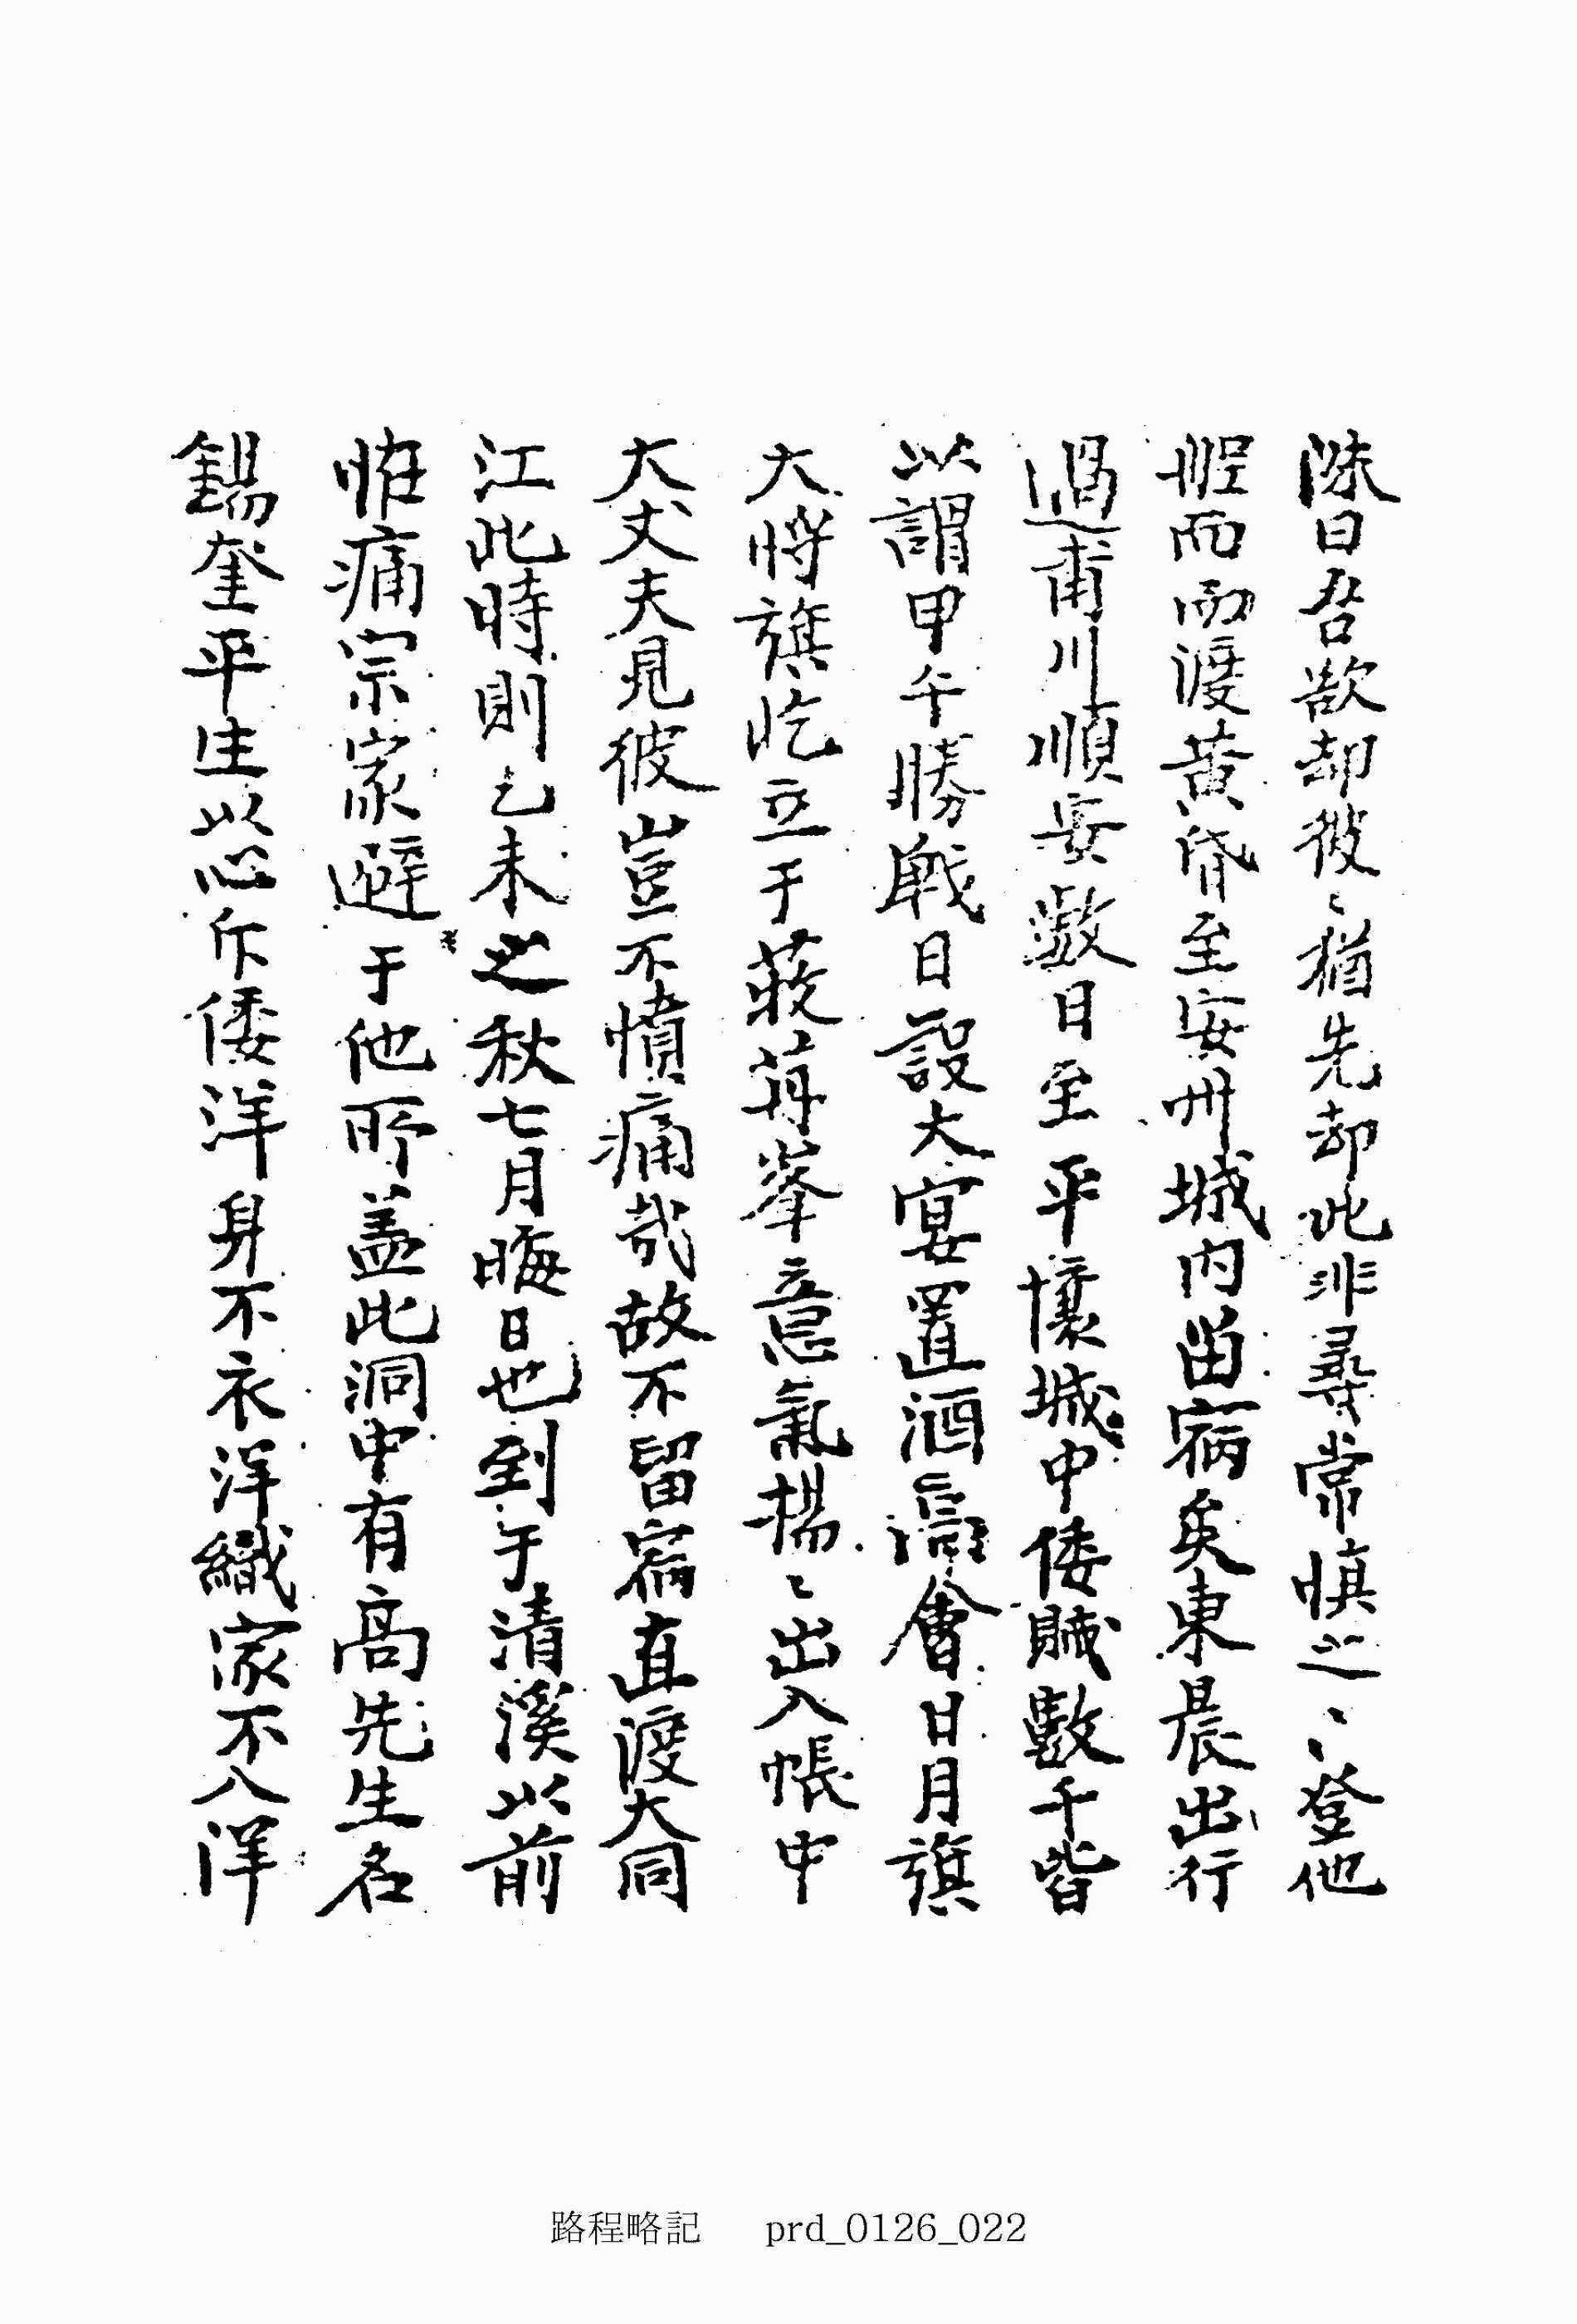 洙曰吾欲却彼〻猶先却此非尋常愼之〻登他
船而而渡黃昏至安州城內留宿矣東晨出行
過甫川順安數日至平壤城〻中倭賊數千皆
以謂甲午勝戰日設大宴置酒高會日月旗
大將旗屹立于莊丹峯意氣揚〻出入帳中
大丈夫見彼豈不憤痛哉故不留宿直渡大同
江此時則乙未之秋七月晦日也到于清溪以前
惟痛宗家避于他所盖此洞中有高先生名
錫奎平生以心斥倭洋身不衣洋織家不入洋
路程略記 prd_0126_022